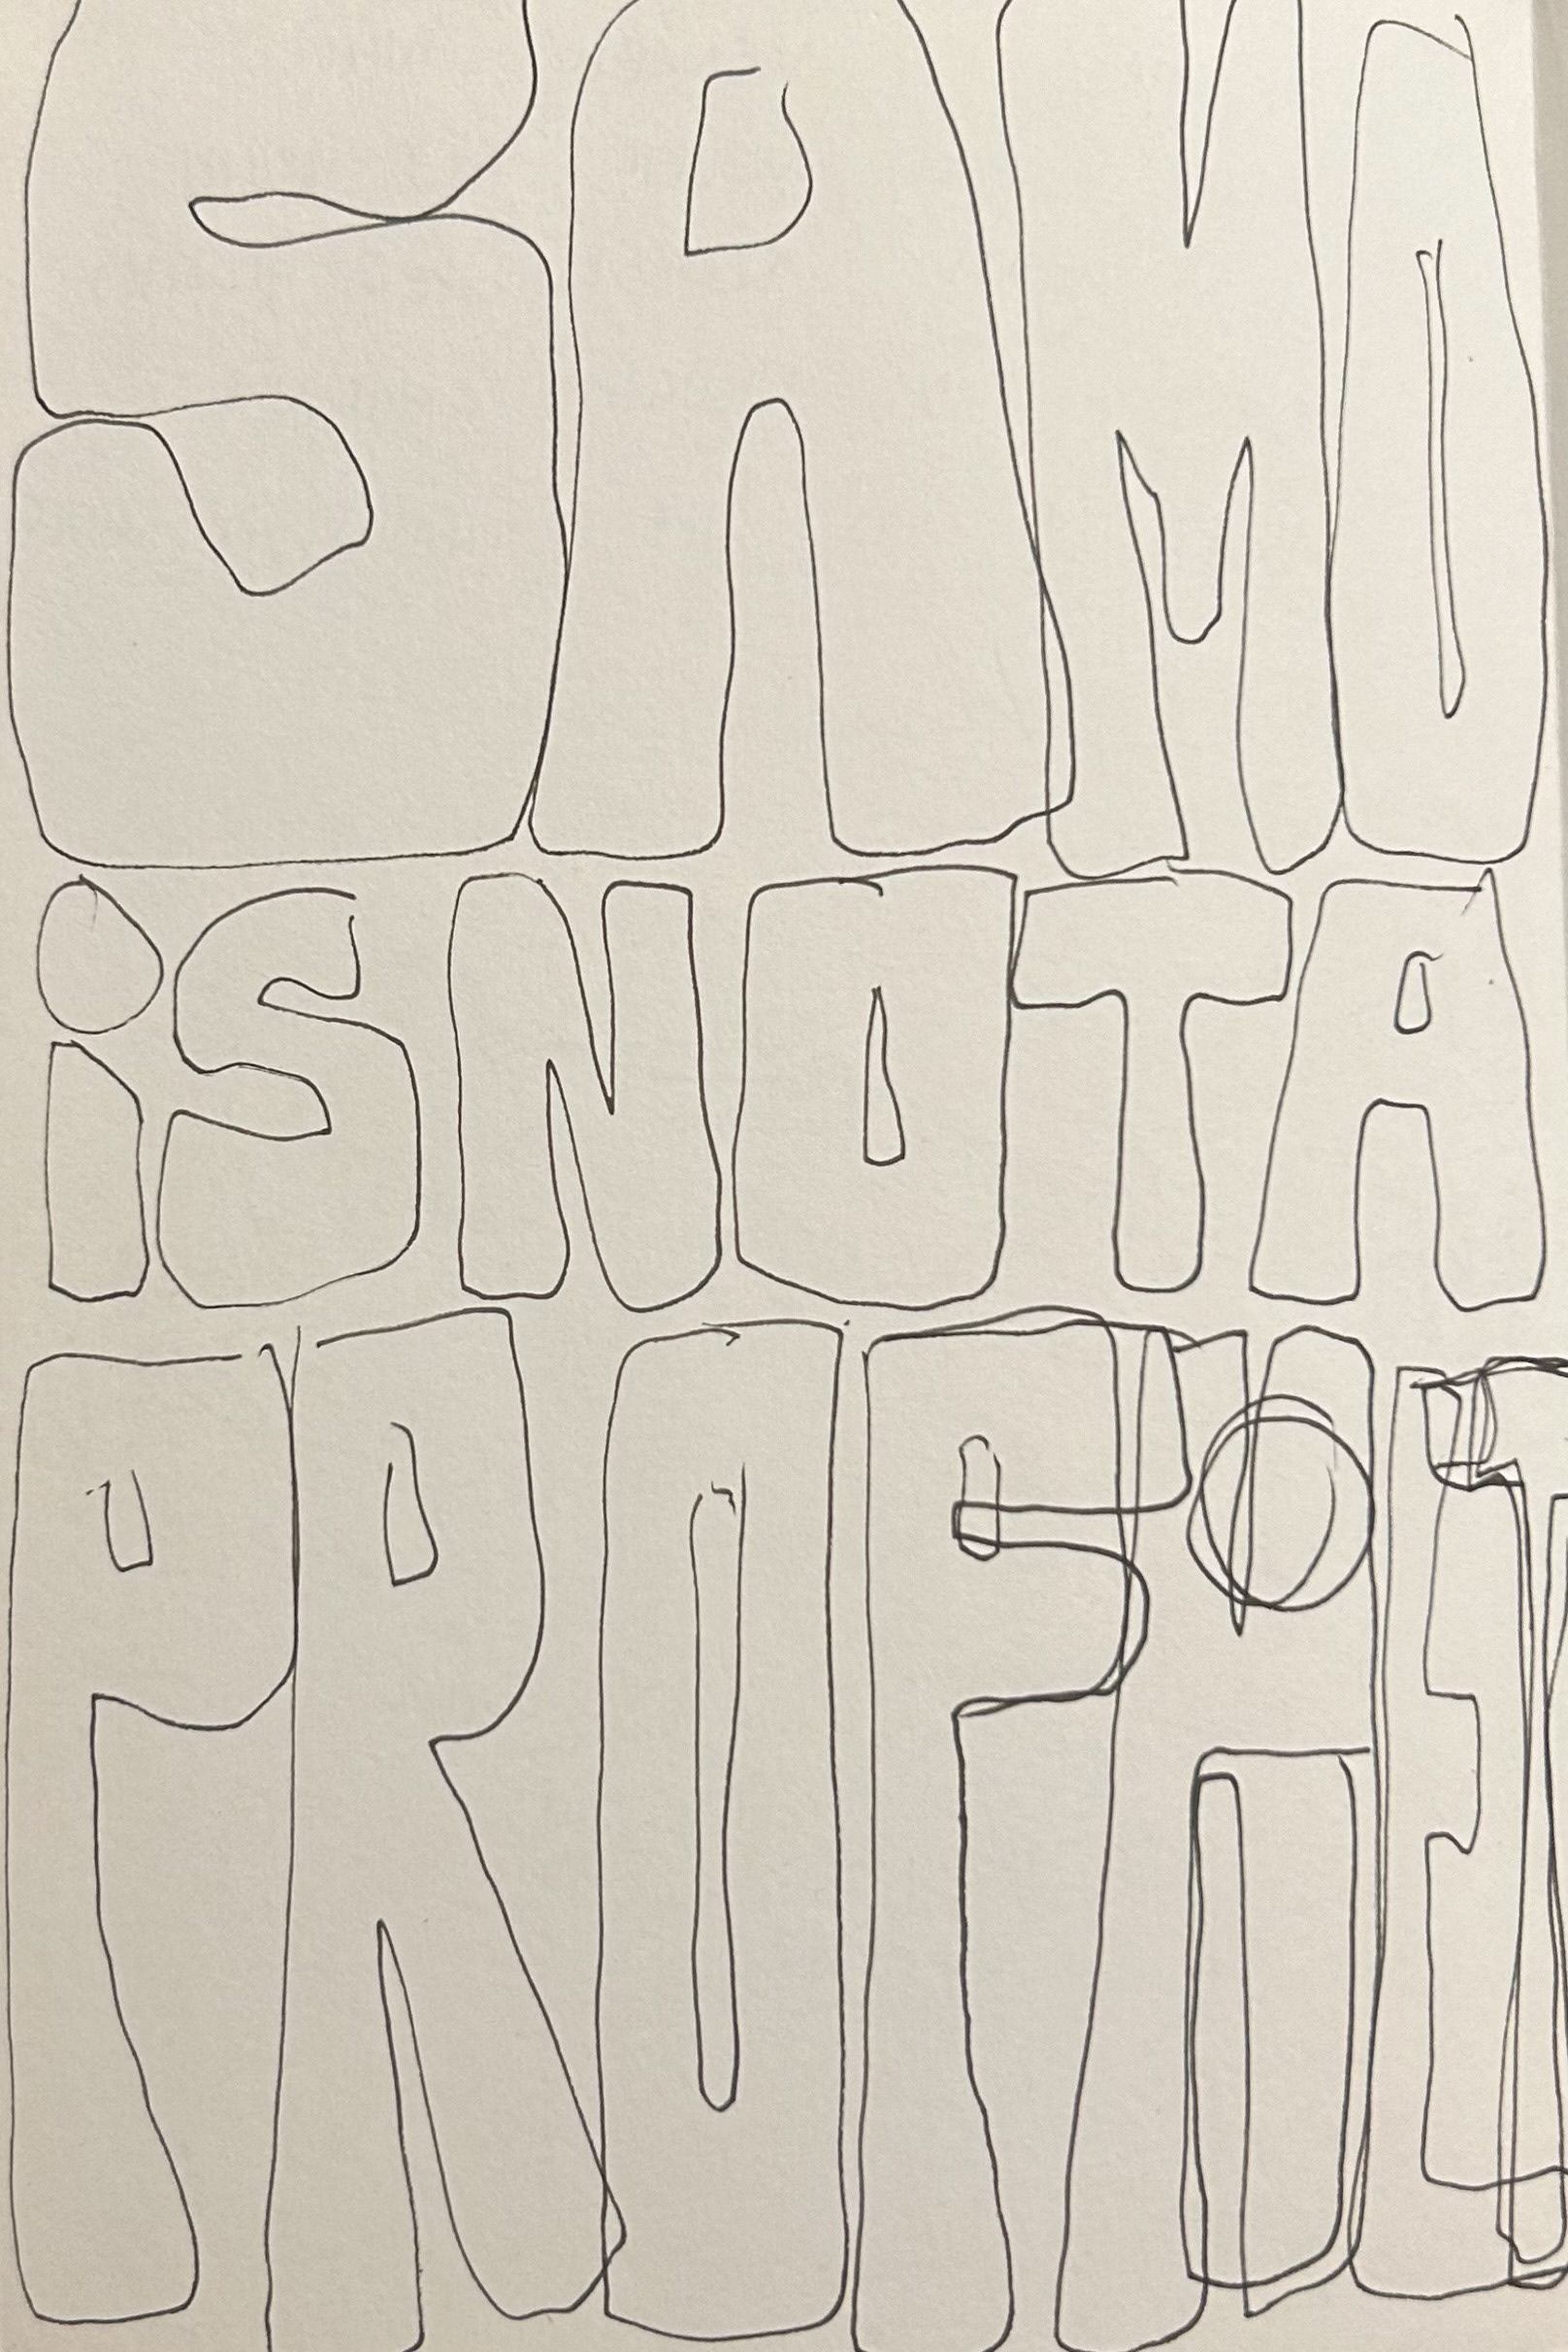 SAMO
iS NOT A
PROFiT